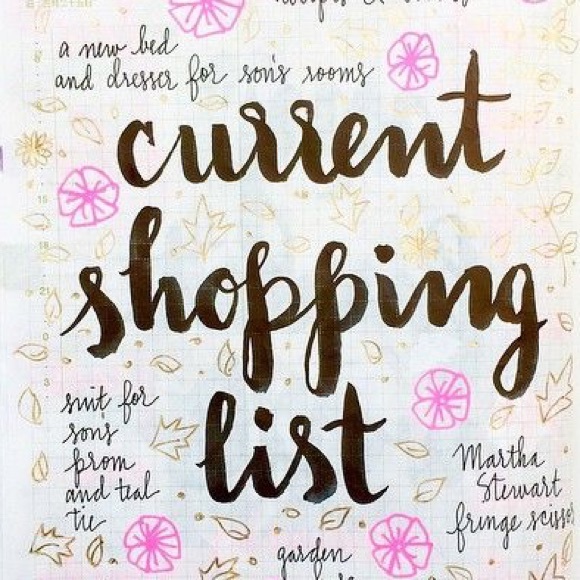 a new bed
and dresser for son's rooms
current
shopping
list
suit for
son's
prom
and teal
tie
Martha
Stewart
fringe scisso
garden